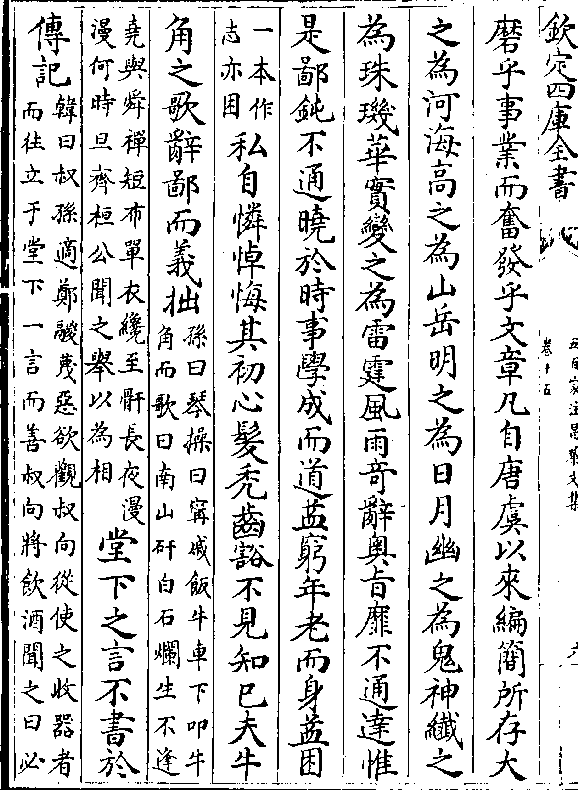 欽定四庫全書
卷十五
磨乎事業而奮發乎文章凡自唐虞以來編簡所存大
之為河海高之為山岳明之為日月幽之為鬼神纖之
為珠璣華實變之為雷霆風雨奇辭奧旨靡不通達惟
是鄙鈍不通曉於時事學成而道益窮年老而身益困
一本作
志亦困
私自憐悼悔其初心髮禿齒豁不見知已夫牛
角之歌辭鄙而義拙
孫曰琴操曰甯戚飯牛車下叩牛
角而歌曰南山矸白石爛生不逢
堯與舜禪短布單衣纔至骭長夜漫
漫何時旦齊桓公聞之舉以為相
堂下之言不書於
傳記
韓曰叔孫適鄭鬷蔑惡欲觀叔向從使之收器者
而往立于堂下一言而善叔向將飲酒聞之曰必